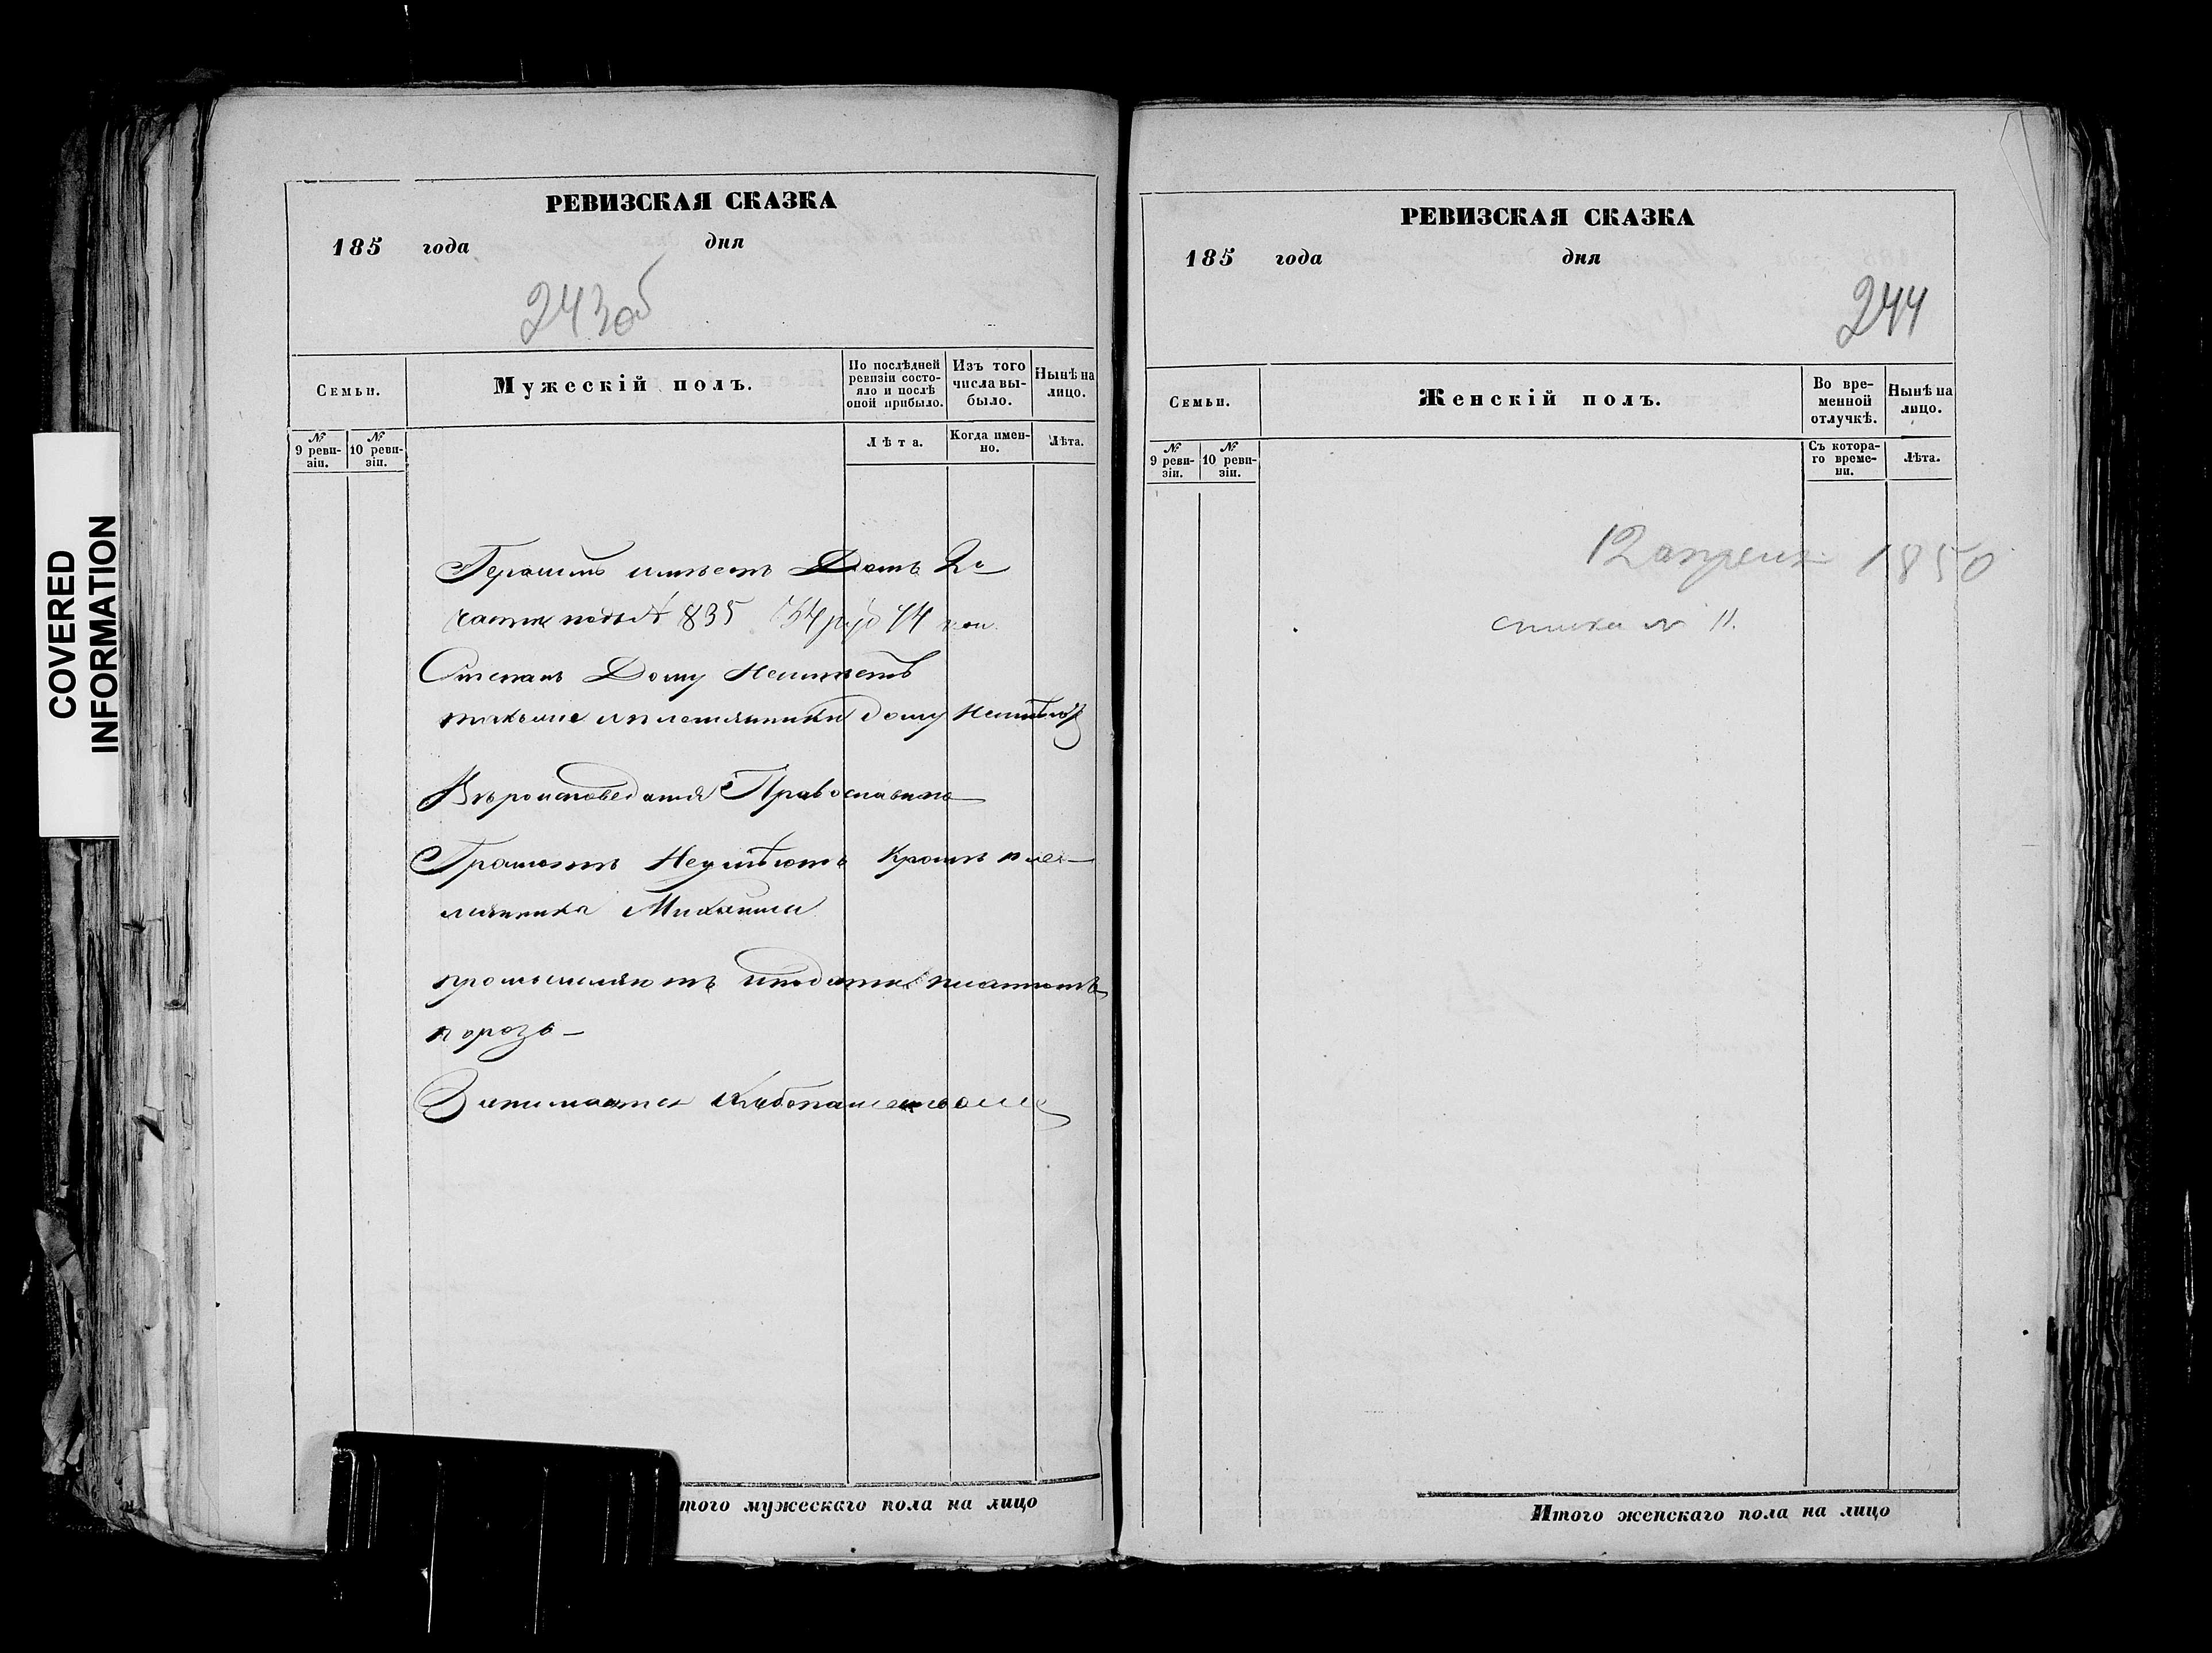 COVERED
INFORMATION
РЕВИЗСКАЯ СКАЗКА
185 года дня
243об
Семьи.
Мужескій полъ.
По послѣдней
ревизіи состо-
яло и послѣ
оной прибыло.
Изъ того
числа вы-
было.
Нынѣ на
лицо.
№
9 реви-
зіи.
№
10 реви-
зіи.
Лѣта.
Когда имен-
но.
Лѣта.
Герасимъ имѣетъ Домъ 2й
части подъ № 835 руб 44 коп
Степанъ Дому Неимѣетъ
такъже и племянники дому Неимѣютъ
Вѣроисповеданія Православнаго
Грамотѣ Неумѣютъ Кромѣ пле-
мянника Михаила
промышляютъ и подати платютъ
порозь
Занимаются хлебопашествомъ
того мужескаго пола на лицо
РЕВИЗСКАЯ СКАЗКА
185 года дня
244
Семьи.
Женскій полъ.
Во вре-
менной
отлучкѣ.
Нынѣ на
лицо.
№
9 реви-
зіи.
№
10 реви-
зіи.
Съ котора-
го време-
ни.
Лѣта.
12 апреля 1850
№ 11.
Итого женскаго пола на лицо